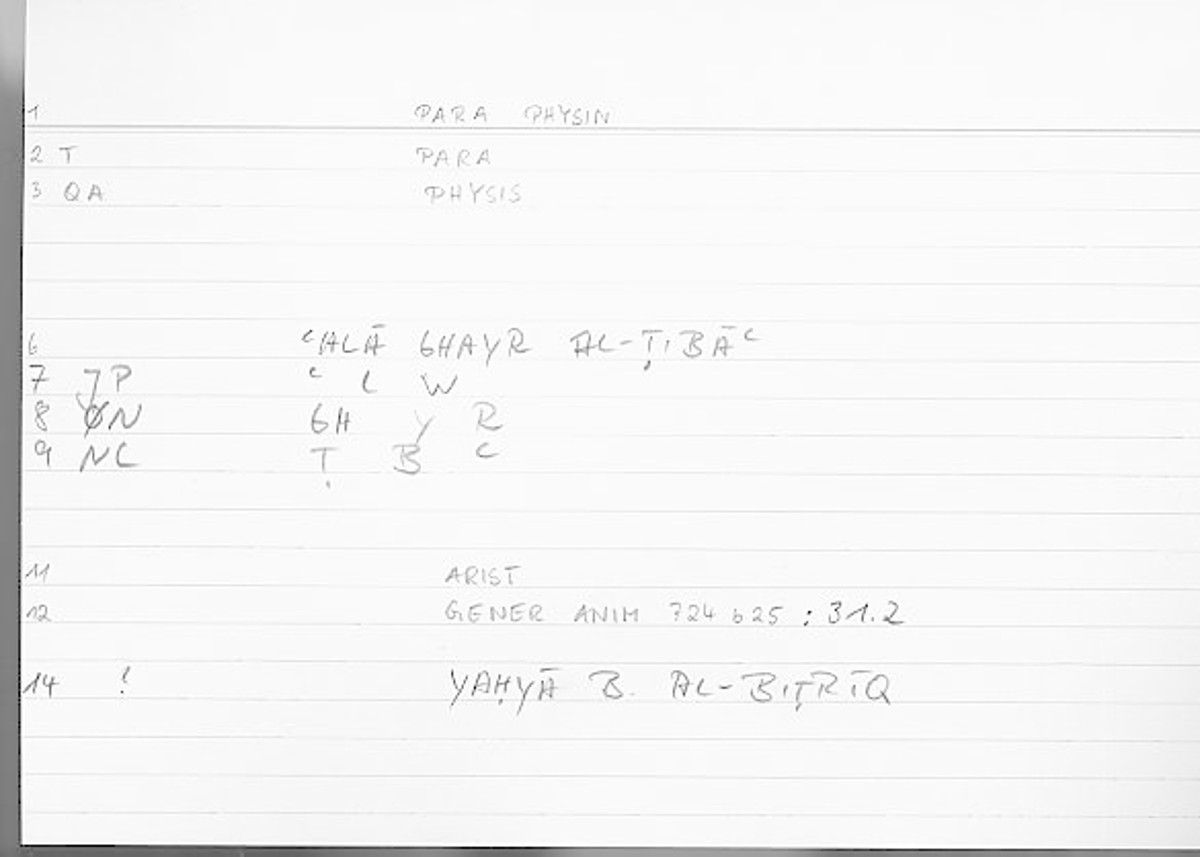 1 PARA PHYSIN
2 T PARA
3 QA PHYSIS
6 ʿALĀ GHAYR AL-ṬIBĀʿ
7 JP ʿ L W
8 ØN GH Y R
9 NC Ṭ B ʿ
11 ARIST
12 GENER ANIM 724 b 25 : 31.2
14 ! YAḤYĀ B. AL-BIṬRĪQ